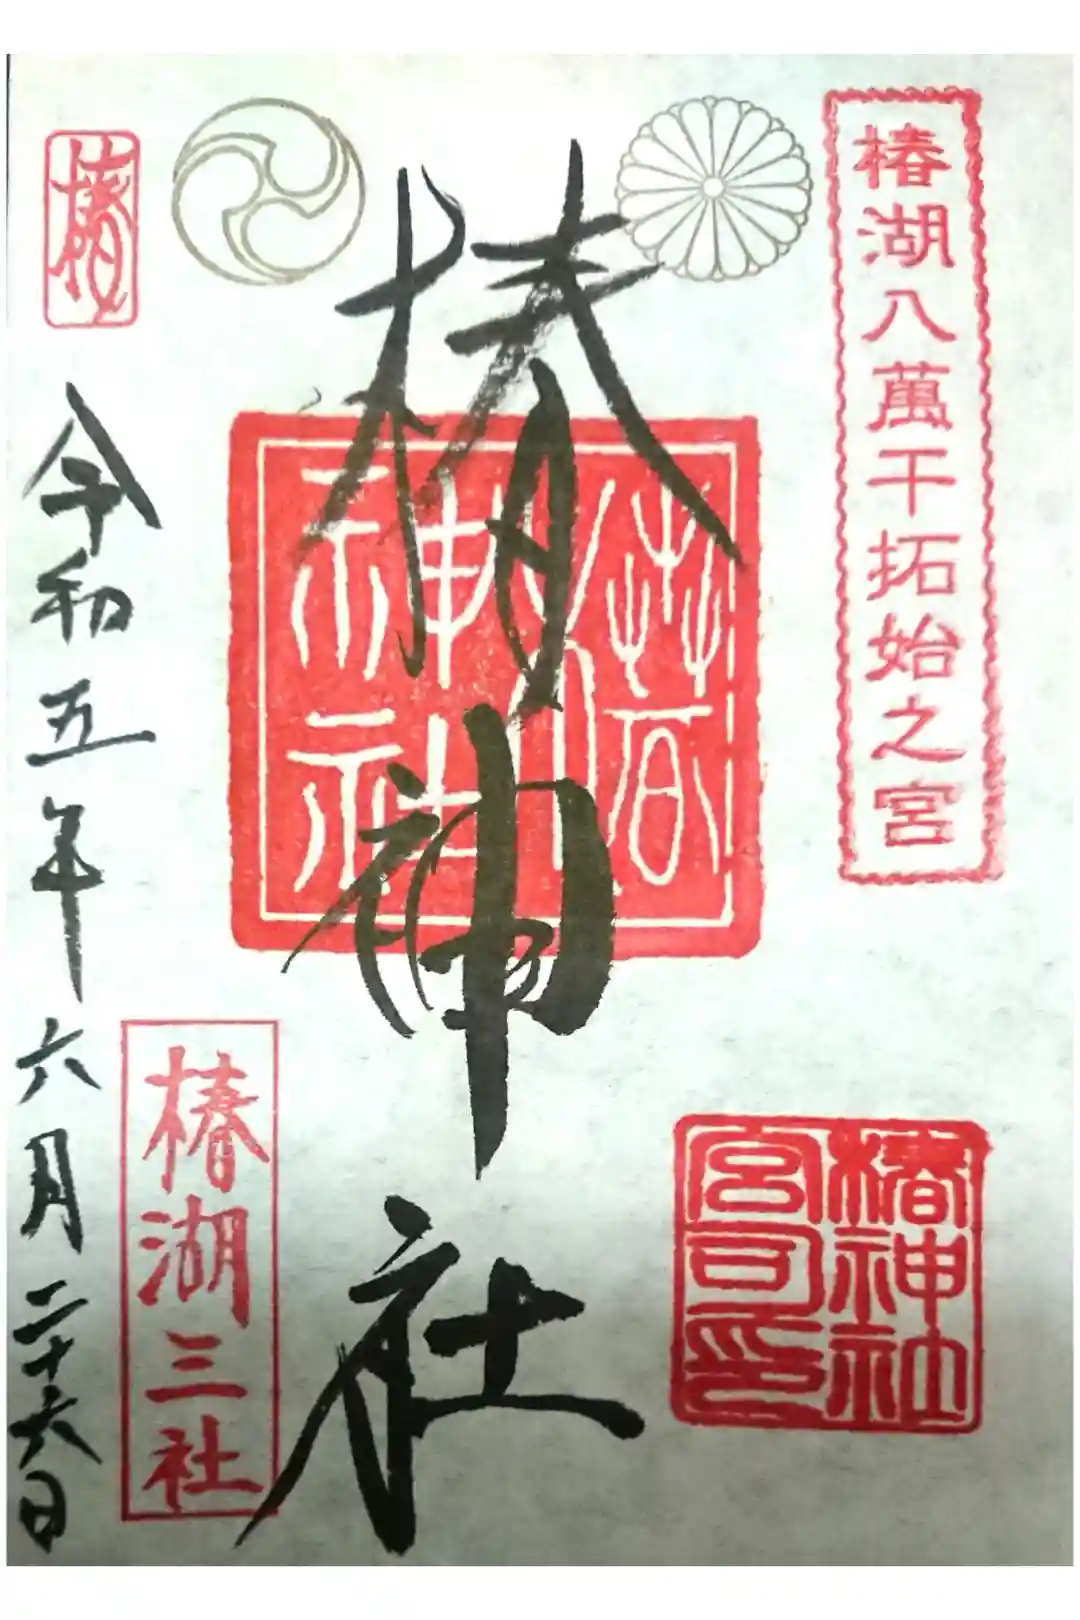 椿湖八萬干拓始之宮
椿神社
宮司印
椿神社
神社
椿
令和五年六月二十六日
椿湖三社